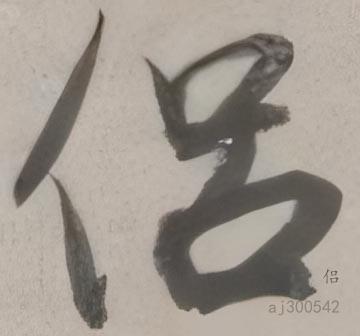 侣
侣
aj300542